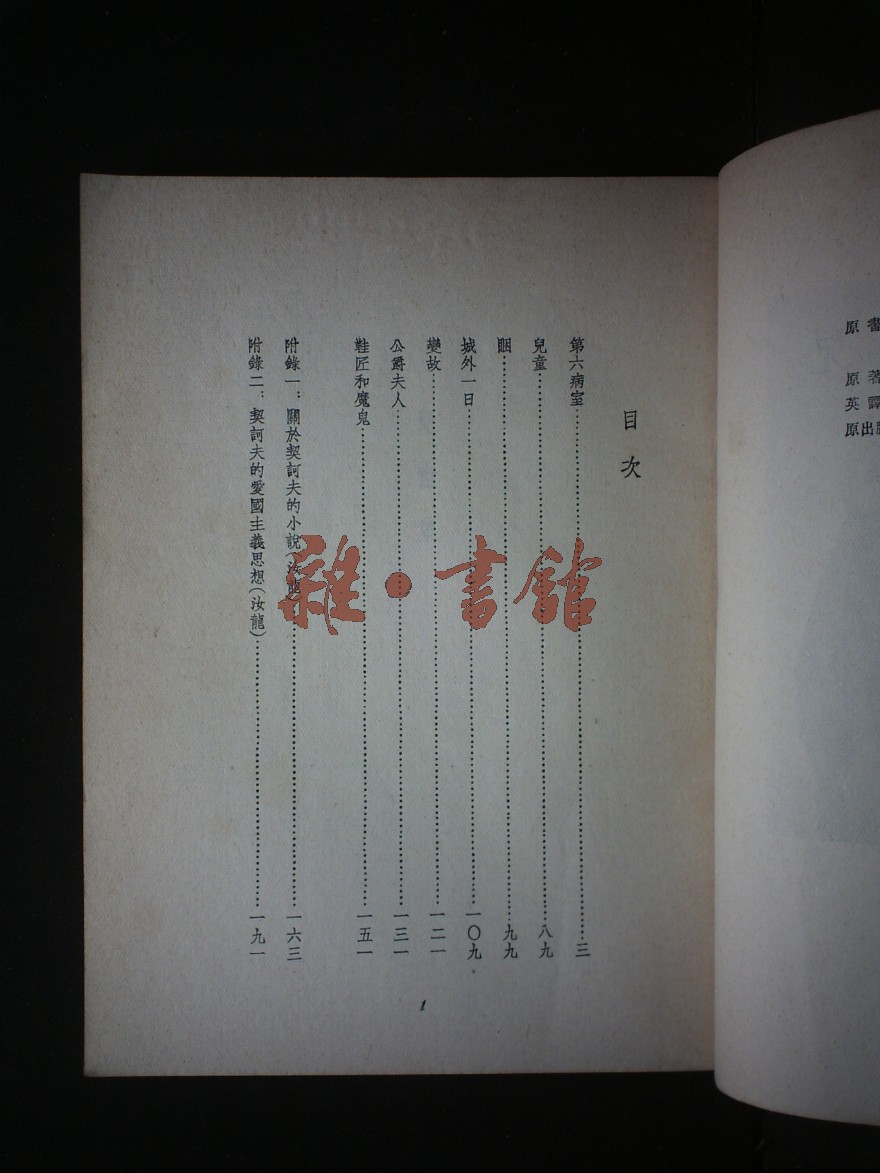 原書
原著
英譯
原出版
目次
第六病室……三
兒童……八九
睏……九九
城外一日……一〇九
變故……一二一
公爵夫人……一三一
鞋匠和魔鬼……一五一
附錄一：關於契訶夫的小說(汝龍)……一六三
附錄二：契訶夫的愛國主義思想(汝龍)……一九一
1
雜·書館